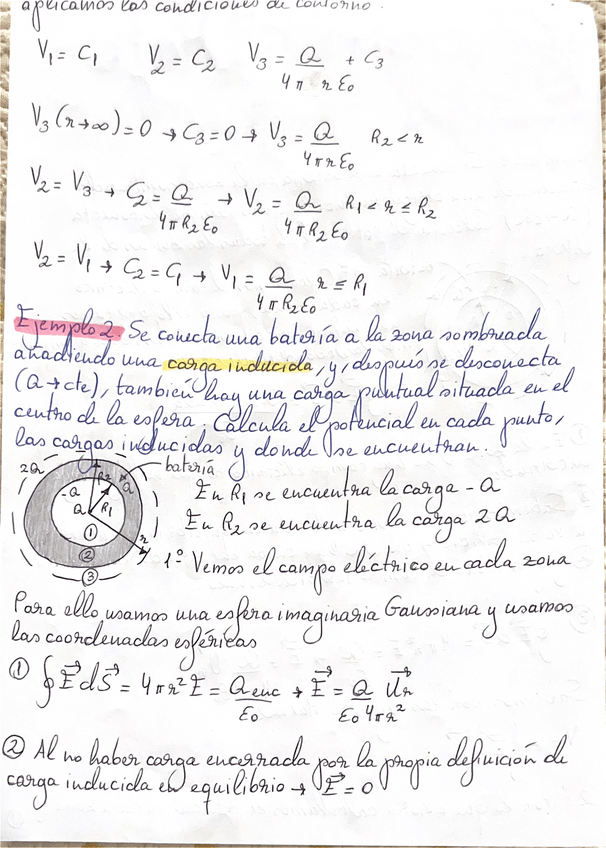 aplicamos las condiciones de contorno.
V₁ = C₁ V₂ = C₂ V₃ = Q/(4π r ε₀) + C₃
V₃(r→∞) = 0 → C₃ = 0 → V₃ = Q/(4π r ε₀) R₂ < r
V₂ = V₃ → C₂ = Q/(4π R₂ ε₀) → V₂ = Q/(4π R₂ ε₀) R₁ < r ≤ R₂
V₂ = V₁ → C₂ = C₁ → V₁ = Q/(4π R₂ ε₀) r ≤ R₁
Ejemplo 2. Se conecta una batería a la zona sombreada
añadiendo una carga inducida, y, después se desconecta
(Q → cte), también hay una carga puntual situada en el
centro de la esfera. Calcula el potencial en cada punto,
las cargas inducidas y donde se encuentran.
2Q R₂ Q batería
-Q Q R₁
① ② ③ r
En R₁ se encuentra la carga -Q
En R₂ se encuentra la carga 2Q
1º Vemos el campo eléctrico en cada zona
Para ello usamos una esfera imaginaria Gaussiana y usamos
las coordenadas esféricas
① ∮ E⃗ dS⃗ = 4π r² E = Q enc/ε₀ → E⃗ = Q/(ε₀ 4π r²) u⃗r
② Al no haber carga encerrada por la propia definición de
carga inducida en equilibrio → E⃗ = 0